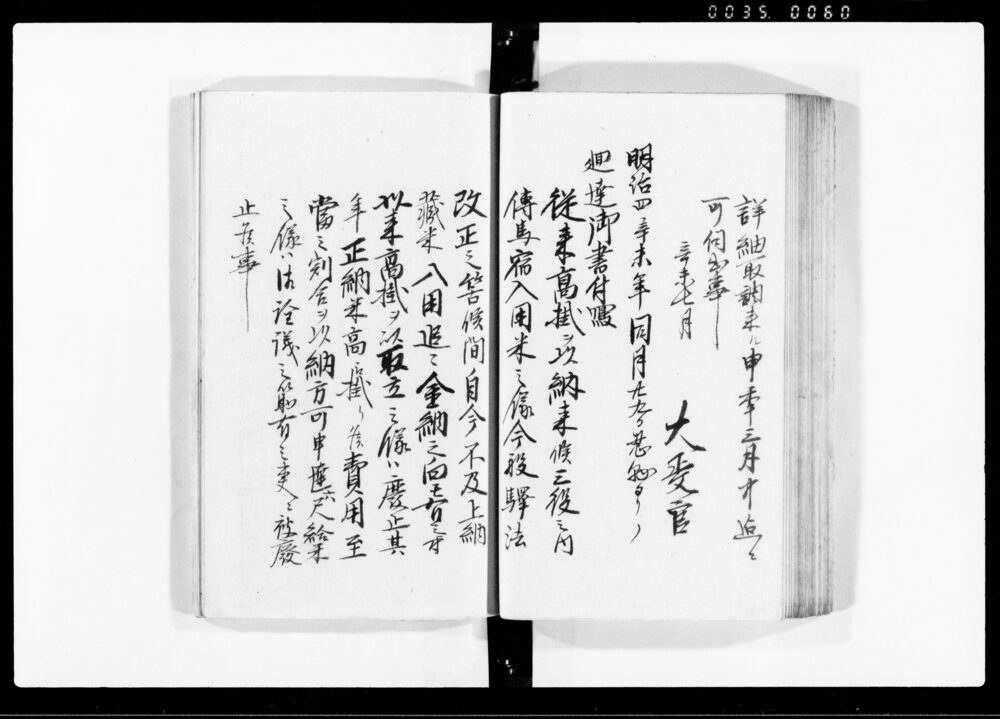 0035. 0060
詳細取調来ル申年三月中迄ニ
可伺出事
辛未七月
大政官
明治四辛未年同月廿九日
廻達御書付写
従来高掛ヲ以納来候三役之内
傳馬宿入用米之儀今般驛法
改正之筈候間自今不及上納
藏米入用追々金納之向モ有之
以来高掛ヲ以取立之儀ハ廃止其
年正納米高ニ掛リ候費用至
當之割合ヲ以納方可申達六尺給米
之儀ハ詮議之筋有之更ニ被廢
止候事